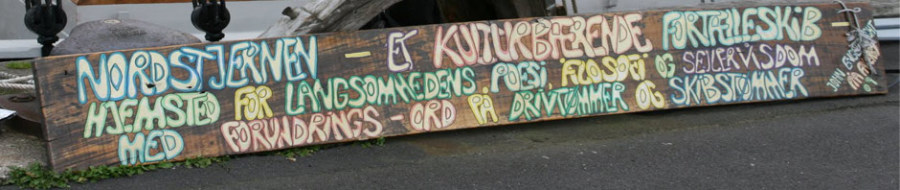 NORDSTJERNEN - ET KULTURBÆRENDE FORTÆLLESKIB -
HJEMSTED FOR LANGSOMHEDENS POESI, FILOSOFI OG SEJLERVISDOM
MED FORUNDRINGS - ORD PÅ DRIVTØMMER OG SKIBSTØMMER